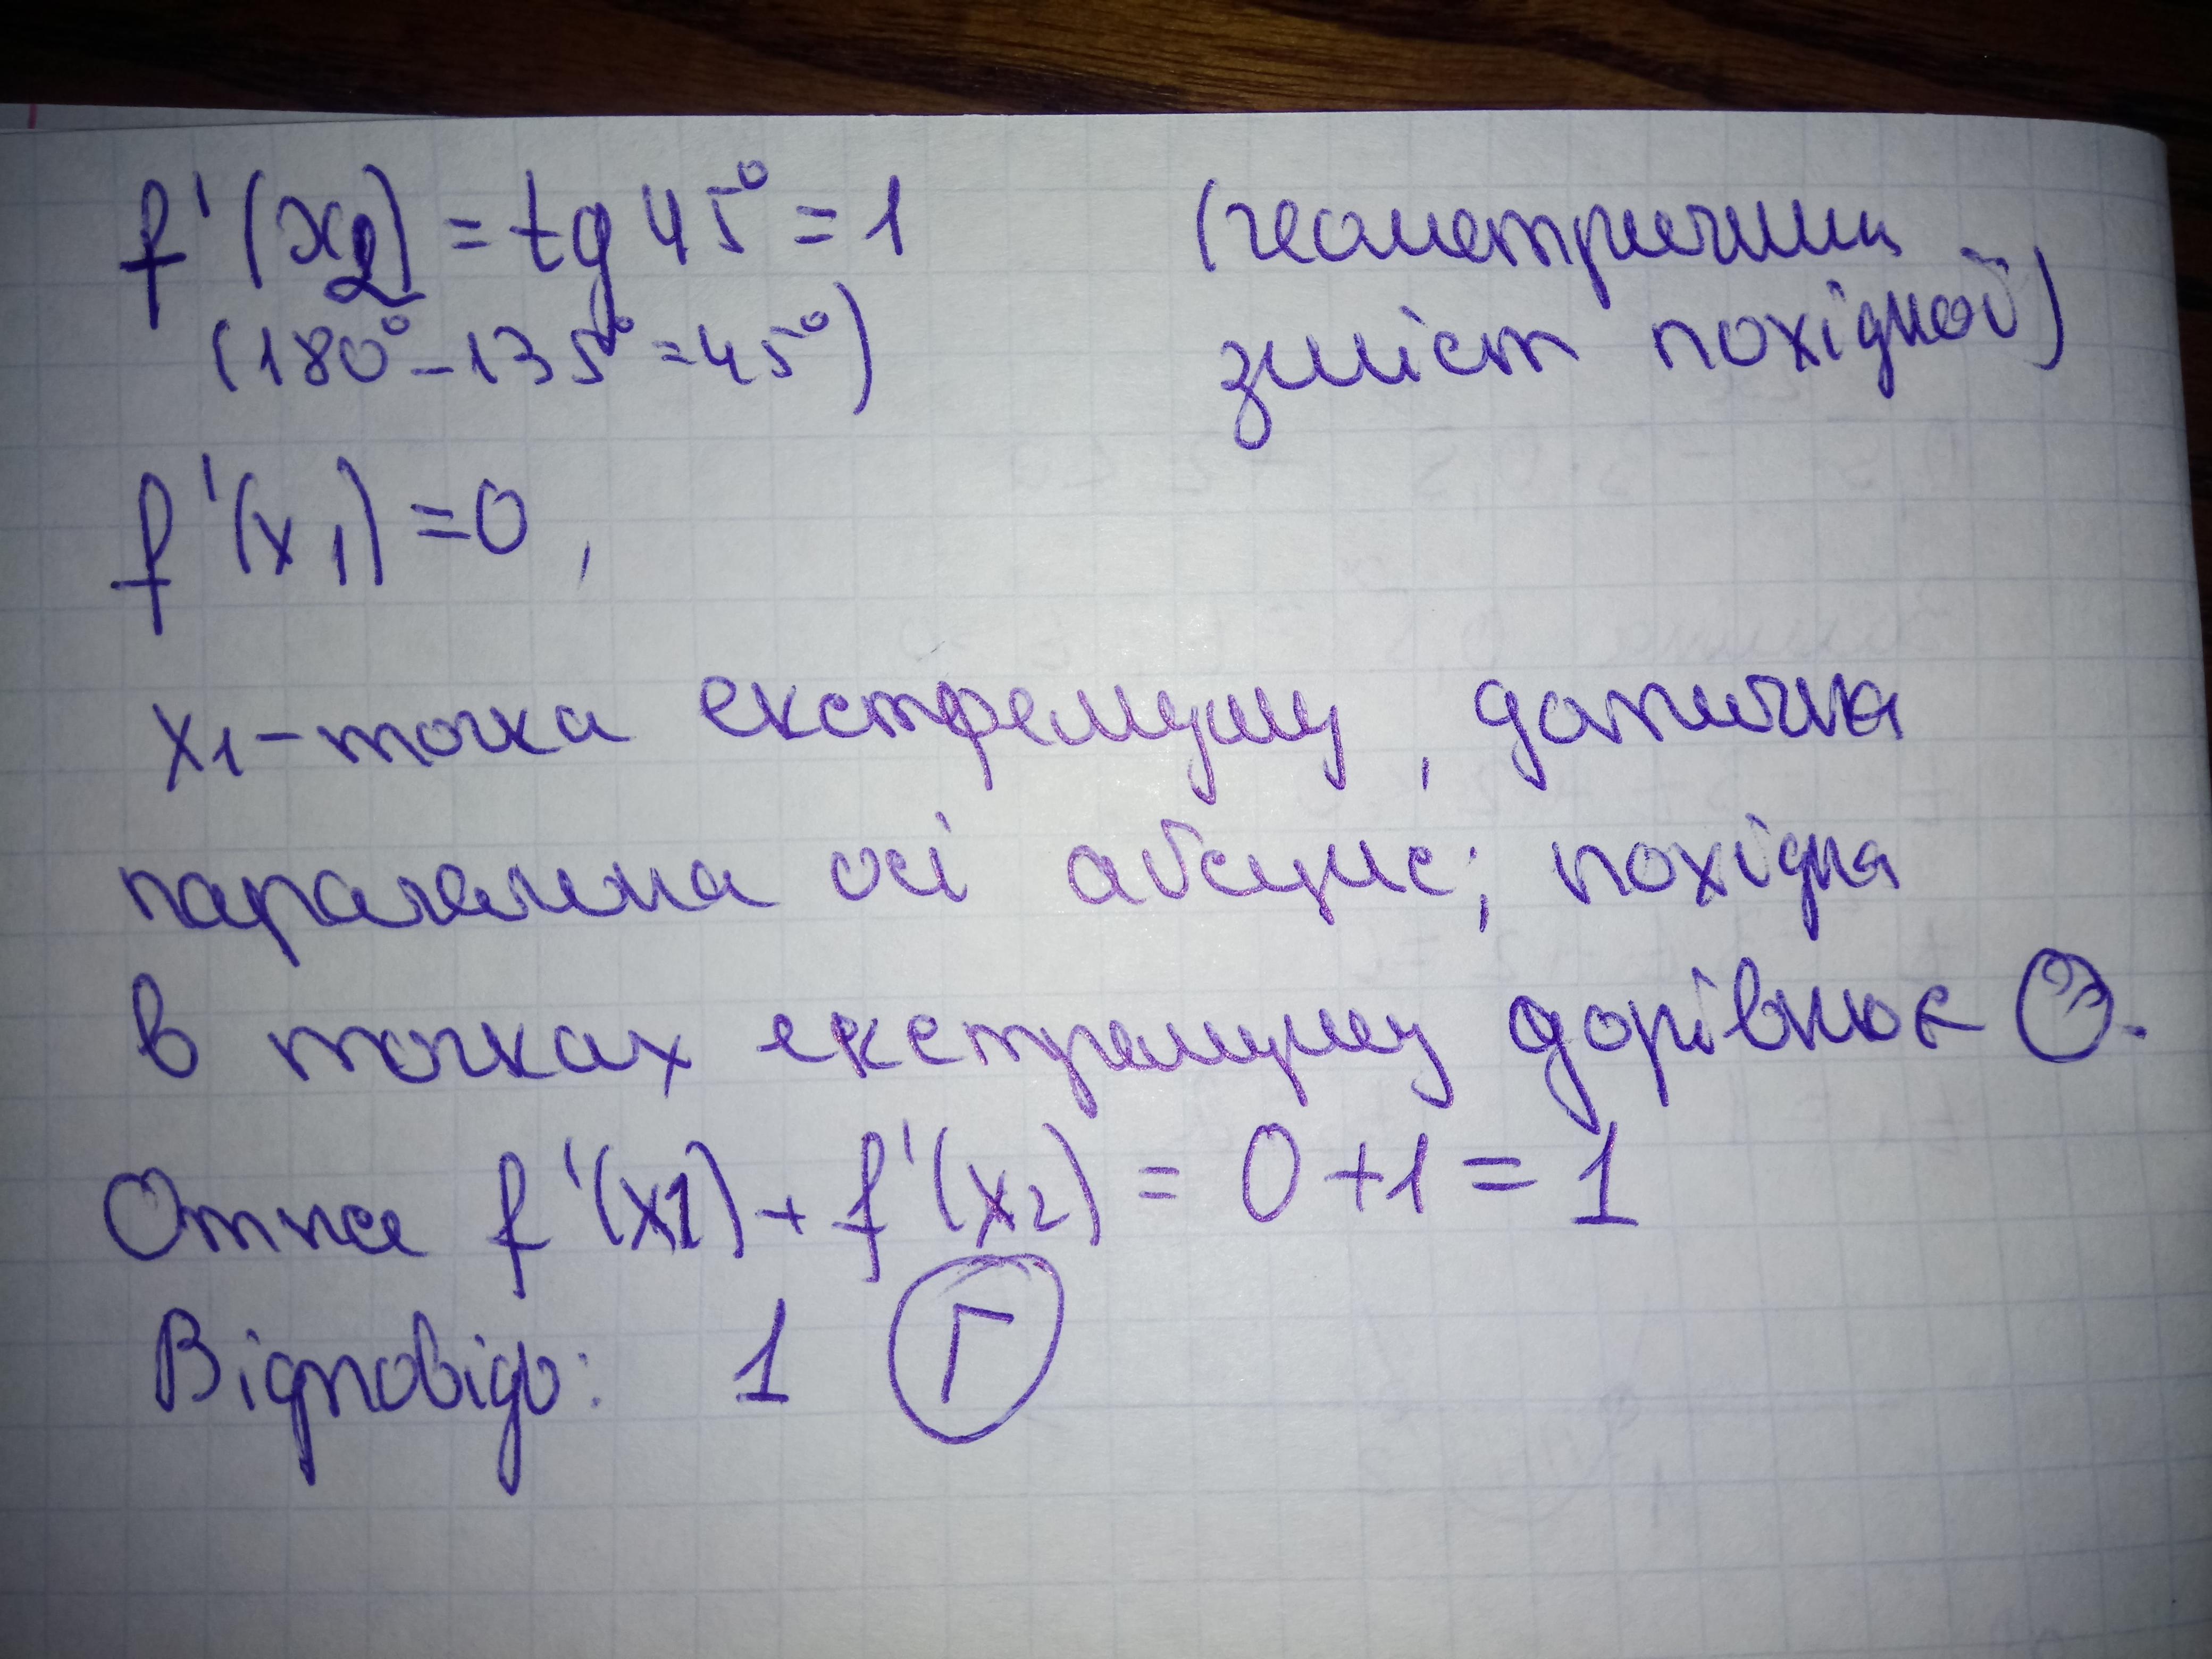 f'(x2) = tg 45° = 1 (геометричний
(180° - 135° = 45°) зміст похідної)
f'(x1) = 0,
x1 - точка екстремуму, дотична
паралельна осі абсцис; похідна
в точках екстремуму дорівнює 0.
Отже f'(x1) + f'(x2) = 0 + 1 = 1
Відповідь: 1 Г